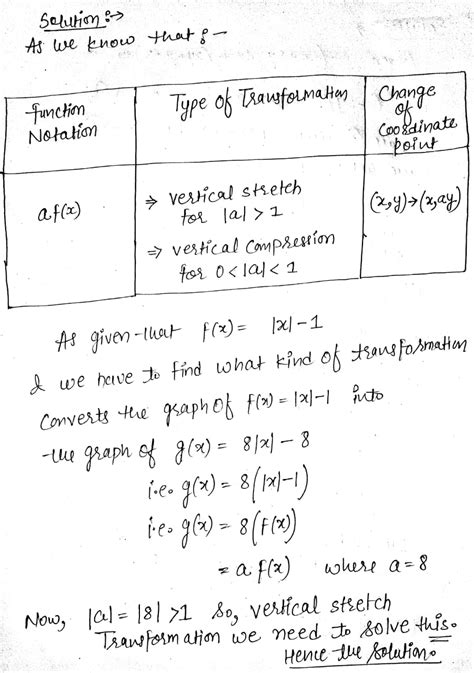 Solution :→
As we know that :-
function Notation
Type of Transformation
Change of Coordinate point
af(x)
⇒ vertical stretch
for |a| > 1
⇒ vertical compression
for 0 < |a| < 1
(x,y)→(x,ay)
As given that f(x) = |x| - 1
& we have to find what kind of transformation
converts the graph of f(x) = |x|-1 into
the graph of g(x) = 8|x| - 8
i.e. g(x) = 8(|x|-1)
i.e. g(x) = 8(f(x))
= a f(x) where a = 8
Now, |a| = |8| > 1 So, vertical stretch
Transformation we need to solve this.
Hence the solution.